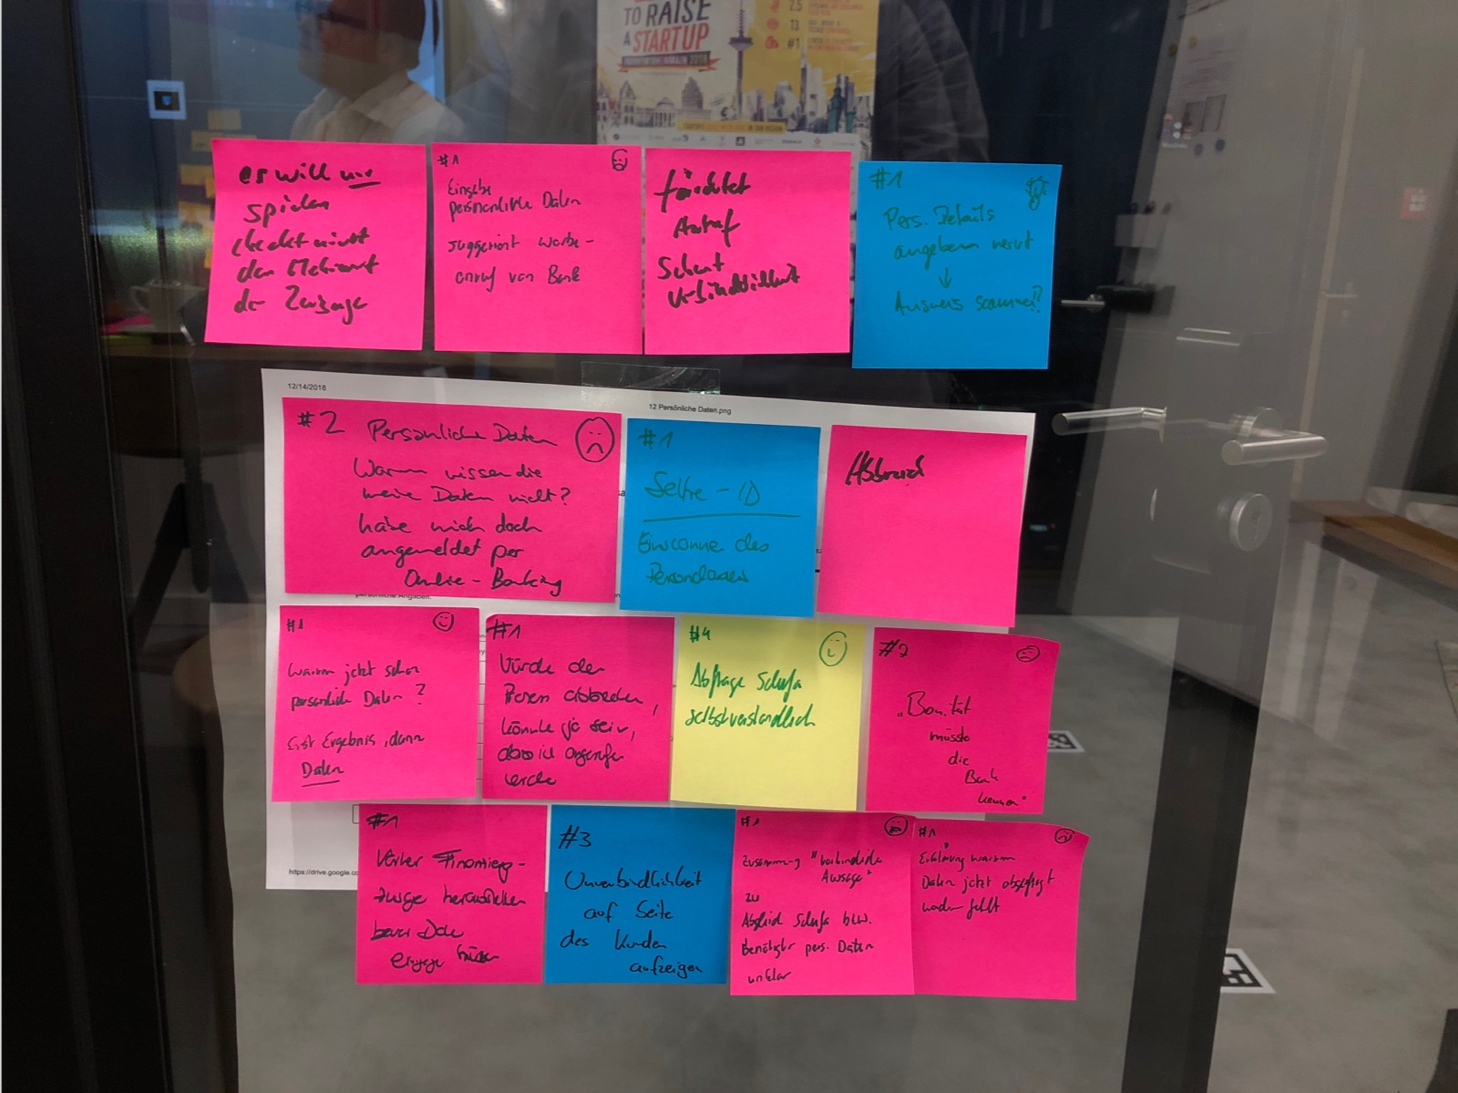 TO RAISE
A STARTUP
2.5
13
#1
er will nur
spielen
checkt nicht
den Mehrwert
der Zusage
#1
Eingabe
persönliche Daten
suggeriert Werbe-
anruf von Bank
fürchtet
Anruf
Scheut
Verbindlichkeit
#1
Pers. Details
angeben nervt
↓
Ausweis scannen?
12/14/2018
12 Persönliche Daten.png
#2 Persönliche Daten
Warum wissen die
meine Daten nicht?
habe mich doch
angemeldet per
Online-Banking
#1
Selfie-ID
Einscannen des
Abbruch
persönliche Angaben.
#1
warum jetzt schon
persönliche Daten?
Erst Ergebnis, dann
Daten
#1
Würde den
Prozess abbrechen,
könnte ja sein,
dass ich angerufen
werde
#4
Abfrage Schufa
selbstverständlich
#2
„Bonität
müsste
die
Bank
kennen"
#1
Vorher Finanzierungs-
zusage herausstellen
bevor Daten
#3
Unverbindlichkeit
auf Seite
des Kunden
aufzeigen
#1
Zusammenhang "verbindliche
Aussage"
zu
Abgleich Schufa bzw.
Benötigte pers. Daten
unklar
#1
Erklärung warum
Daten jetzt abgefragt
werden fehlt
https://drive.google.co